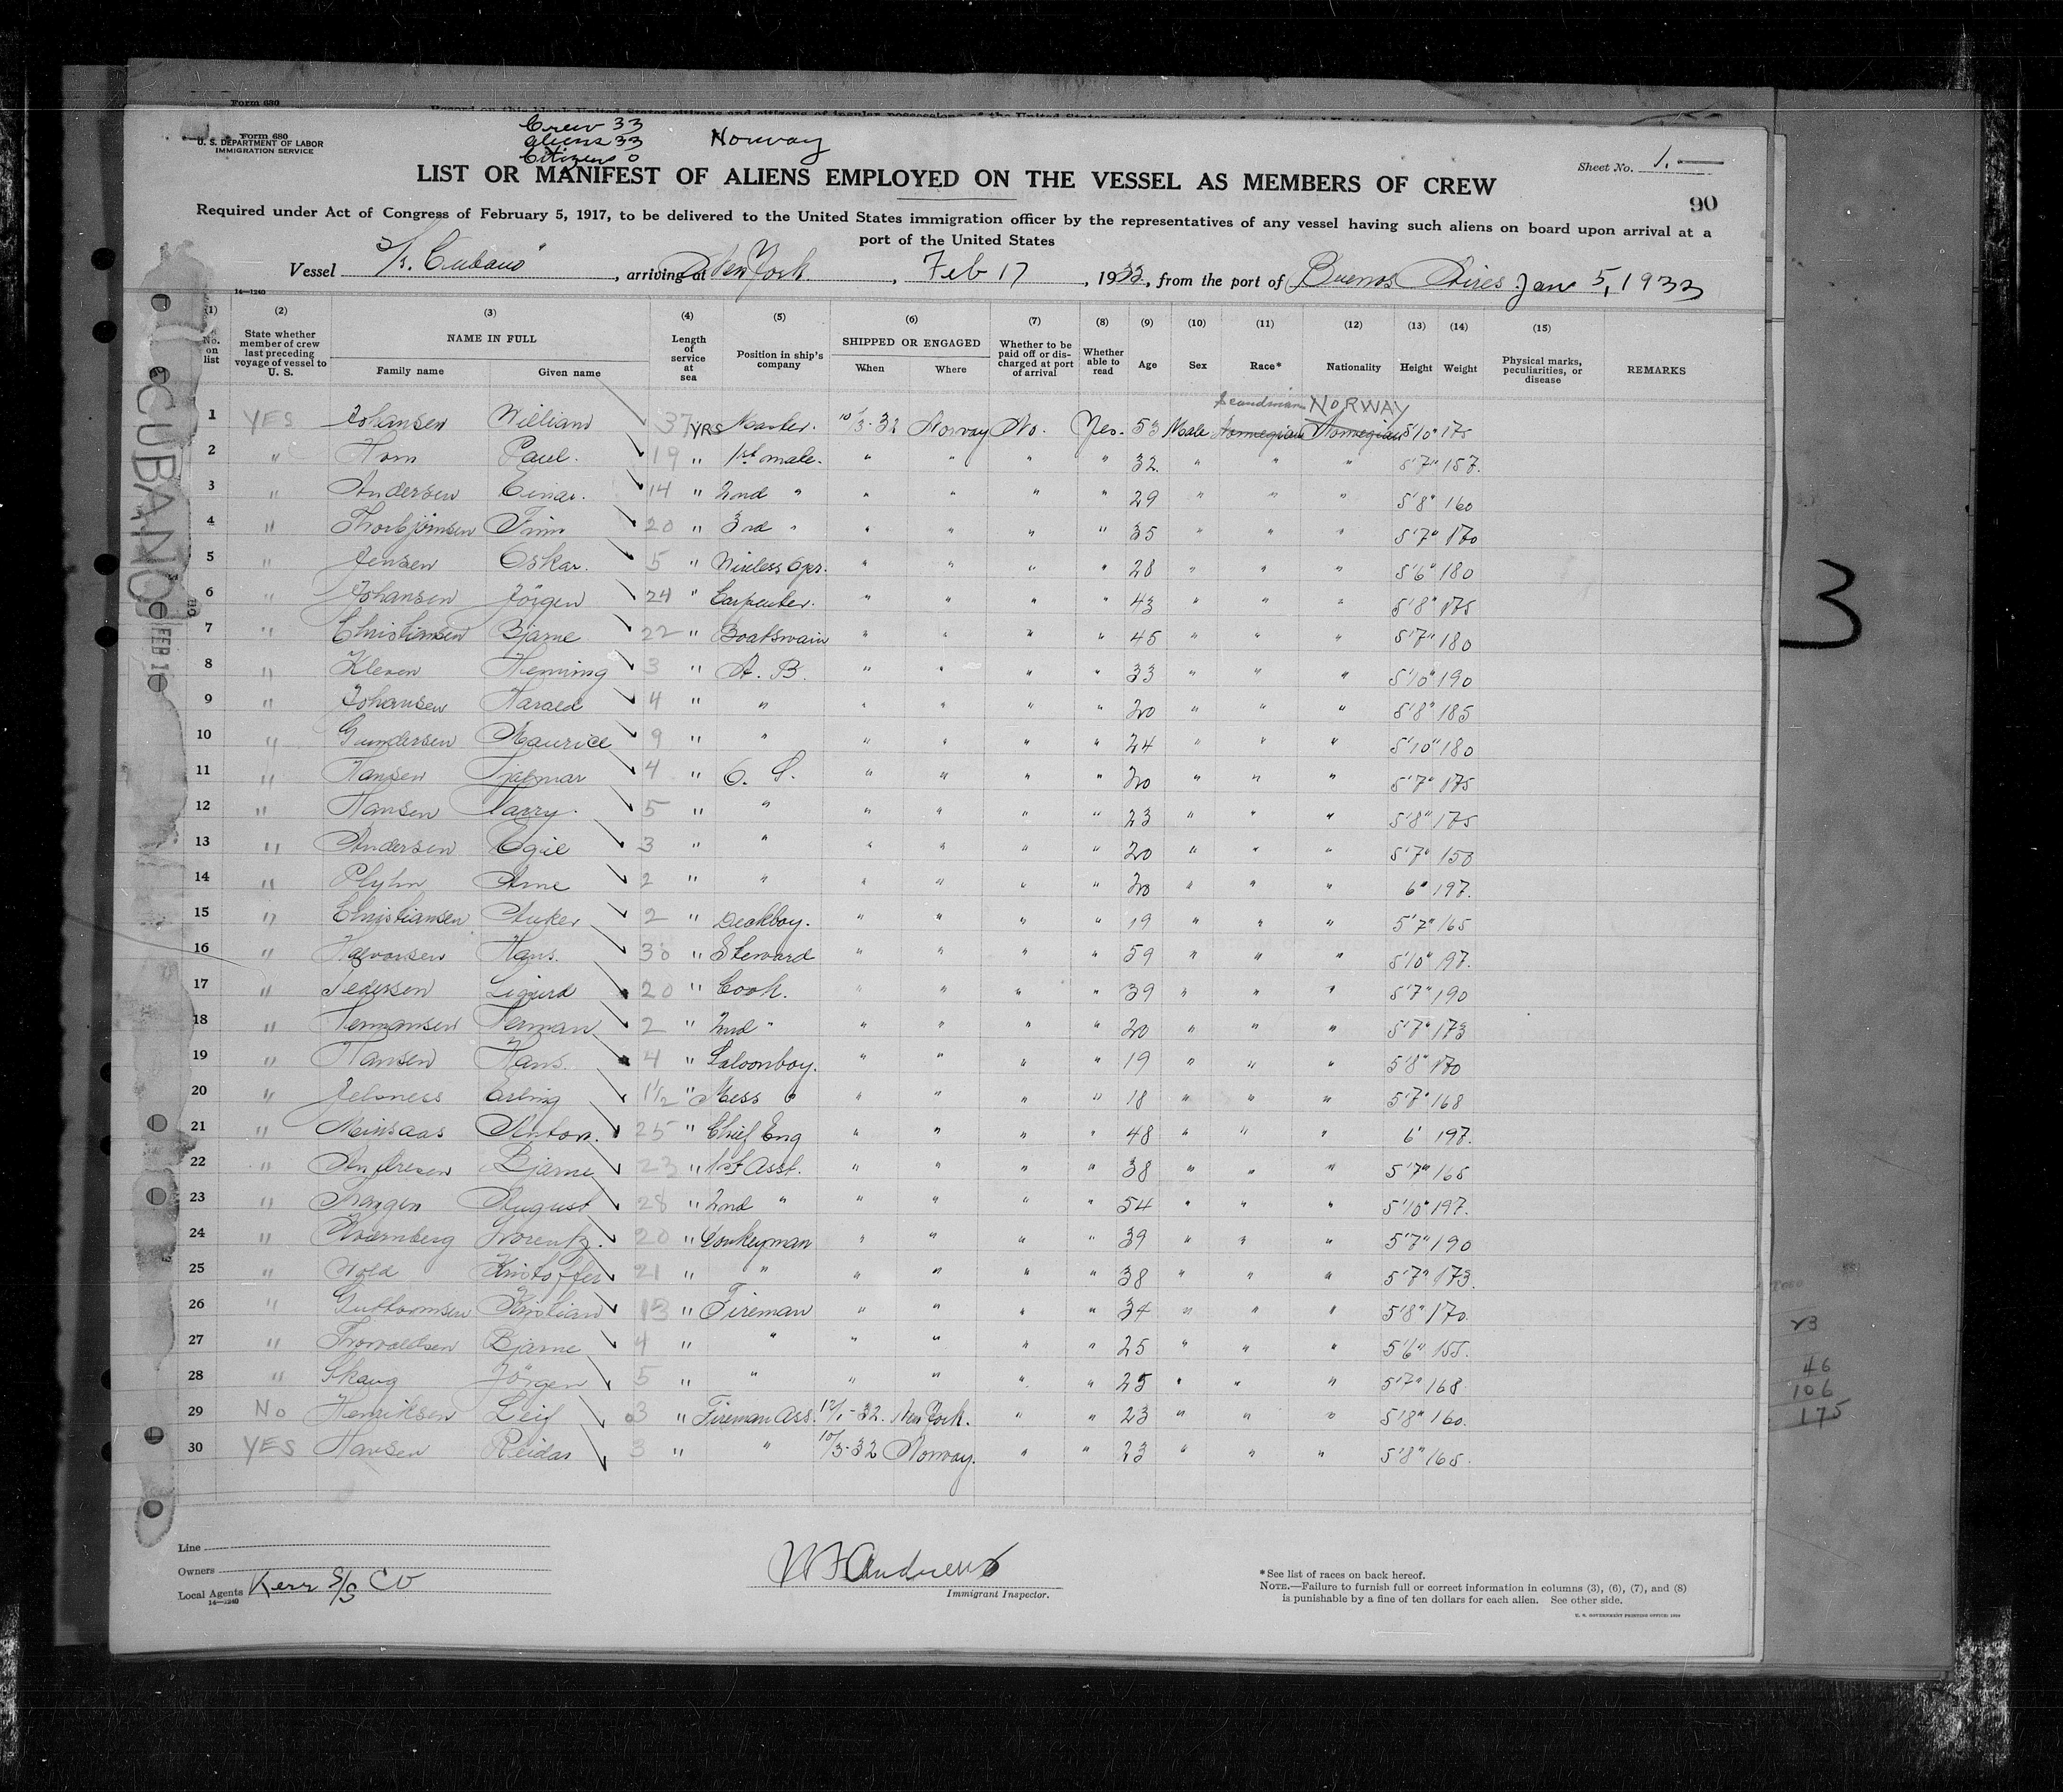 Form 680
Form 680
U. S. DEPARTMENT OF LABOR
IMMIGRATION SERVICE
Crew 33
Aliens 33
Citizens 0
Norway
Sheet No. 1.
LIST OR MANIFEST OF ALIENS EMPLOYED ON THE VESSEL AS MEMBERS OF CREW
90
Required under Act of Congress of February 5, 1917, to be delivered to the United States immigration officer by the representatives of any vessel having such aliens on board upon arrival at a
port of the United States
Vessel S/S. "Cubano", arriving at New York, Feb 17, 1933, from the port of Buenos Aires Jan 5, 1933
14—1240
(1) (2) (3) (4) (5) (6) (7) (8) (9) (10) (11) (12) (13) (14) (15)
No. on list State whether member of crew last preceding voyage of vessel to U. S. NAME IN FULL Family name Given name Length of service at sea Position in ship's company SHIPPED OR ENGAGED When Where Whether to be paid off or discharged at port of arrival Whether able to read Age Sex Race* Nationality Height Weight Physical marks, peculiarities, or disease REMARKS
Scandinavian NORWAY
1 YES Johansen William 37 YRS Master. 10/3-32 Norway No. Yes. 53 Male Norwegian Norwegian 5'10" 175
2 " Horn Paul. 19 " 1st mate. " " " " 32 " " " 5'7" 157.
3 " Andersen Einar. 14 " 2nd " " " " " 29 " " " 5'8" 160
4 " Thorbjörnsen Finn 20 " 3rd " " " " " 35 " " " 5'7" 170
5 " Jensen Oskar. 5 " Wireless Opr. " " " " 28 " " " 5'6" 180
6 " Johansen Jörgen 24 " Carpenter. " " " " 43 " " " 5'8" 175
7 " Christiansen Bjarne 22 " Boatswain " " " " 45 " " " 5'7" 180
8 " Kleven Henning 3 " A. B. " " " " 33 " " " 5'10" 190
9 " Johansen Harald 4 " " " " " " 20 " " " 5'8" 185
10 " Gundersen Maurice 9 " " " " " " 24 " " " 5'10" 180
11 " Hansen Hjalmar 4 " O. S. " " " " 20 " " " 5'7" 175
12 " Hansen Harry. 5 " " " " " " 23 " " " 5'8" 175
13 " Andersen Egil 3 " " " " " " 20 " " " 5'7" 150
14 " Arne 2 " " " " " " 20 " " " 6" 197.
15 " Christiansen 2 " Deckboy. " " " " 19 " " " 5'7" 165
16 " Halvorsen Hans. 30 " Steward " " " " 59 " " " 5'10" 197.
17 " Pedersen Sigurd 20 " Cook. " " " " 39 " " " 5'7" 190
18 " Hermansen Herman 2 " 2nd " " " " " 20 " " " 5'7" 173
19 " Hansen Hans. 4 " Saloonboy. " " " " 19 " " " 5'8" 170
20 " Jelsness Erling 1 1/2 " Mess " " " " " 18 " " " 5'7" 168
21 " Minsaas Anton. 25 " Chief Eng " " " " 48 " " " 6' 197.
22 " Andresen Bjarne 23 " 1st Asst. " " " " 38 " " " 5'7" 168
23 " August 28 " 2nd " " " " " 54 " " " 5'10" 197.
24 " Lorentz. 20 " Donkeyman " " " " 39 " " " 5'7" 190
25 " Kristoffer 21 " " " " " " 38 " " " 5'7" 173.
26 " Guttormsen Kristian 13 " Fireman " " " " 34 " " " 5'8" 170.
27 " Thorvaldsen Bjarne 4 " " " " " " 25 " " " 5'6" 155.
28 " Skaug Jörgen 5 " " " " " " 25 " " " 5'7" 168
29 No Henriksen Leif 3 " Fireman Ass. 12/1-32. New York. " " 23 " " " 5'8" 160.
30 YES Hansen Reidar 3 " " 10/3-32 Norway. " " 23 " " " 5'8" 165.
CUBANO
FEB 1
3
23
46
106
175
Line
Owners
Local Agents Kerr S/S Co
14—1240
W F Andrews
Immigrant Inspector.
*See list of races on back hereof.
NOTE.—Failure to furnish full or correct information in columns (3), (6), (7), and (8)
is punishable by a fine of ten dollars for each alien. See other side.